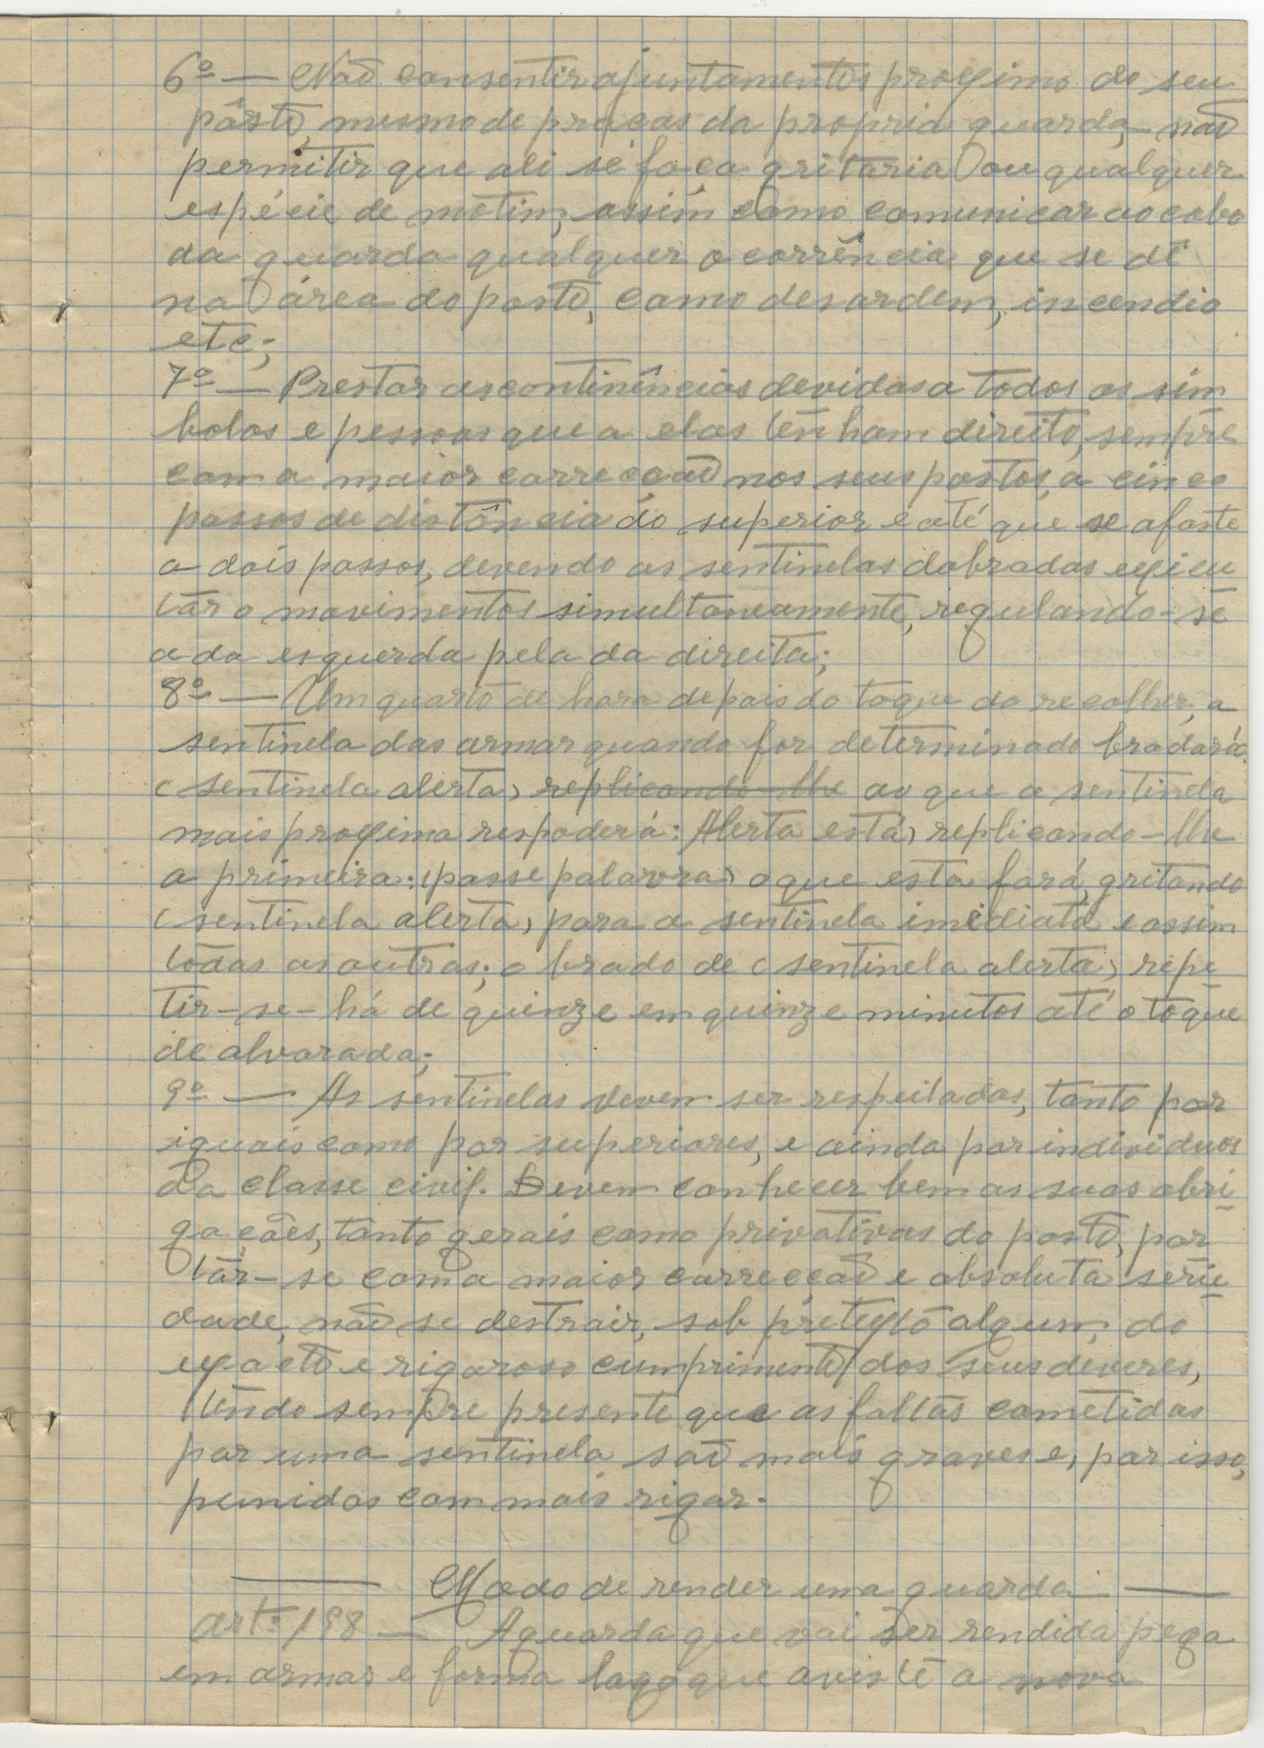 6º — Não consentir ajuntamentos proximo do seu
pôsto, mesmo de praças da propria guarda, não
permitir que ali se faça gritaria ou qualquer
espécie de motim, assim como comunicar ao cabo
da guarda qualquer ocorrência que se dê
na área do posto, como desordem, incendio
etc;
7º — Prestar as continências devidas a todos os sim
bolos e pessoas que a elas tenham direito, sempre
com a maior correcção nos seus postos, a cinco
passos de distância do superior e até que se afaste
a dois passos, devendo as sentinelas dobradas execu
tar o movimentos simultaneamente, regulando-se
a da esquerda pela da direita;
8º — Um quarto de hora depois do toque do recolher, a
sentinela das armas quando for determinado bradará:
(sentinela alerta) replicando-lhe ao que a sentinela
mais proxima respoderá: Alerta está) replicando-lhe
a primeira: (passe palavra) o que esta fará, gritando
(sentinela alerta) para a sentinela imediata e assim
todas as outras; o brado de (sentinela alerta) repe
tir-se-há de quinze em quinze minutos até o toque
de alvorada;
9º — As sentinelas devem ser respeitadas, tanto por
iguais como por superiores, e ainda por individuos
da classe civil. Devem conhecer bem as suas obri
gações, tanto gerais como privativas do posto, por
tar-se com a maior correcção e absoluta serie
dade, não se destrair, sob pretexto algum, do
exacto e rigoroso cumprimento dos seus deveres,
tendo sempre presente que as faltas cometidas
por uma sentinela são mais graves e, por isso,
punidas com mais rigor.
— Modo de render uma guarda —
artº 198 — A guarda que vai ser rendida pega
em armas e forma logo que aviste a nova